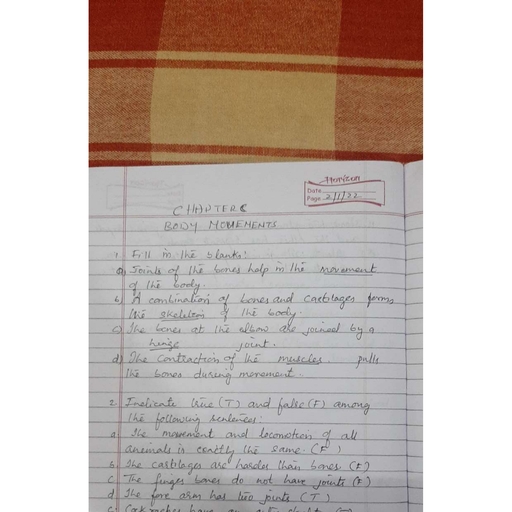 Horizon
Date
Page 2/1/22
CHAPTER 6
BODY MOVEMENTS
1. Fill in the blanks:
a) Joints of the bones help in the movement
of the body.
b) A combination of bones and cartilages forms
the skeleton of the body.
c) The bones at the elbow are joined by a
hinge joint.
d) The contraction of the muscles pulls
the bones during movement.
2. Indicate true (T) and false (F) among
the following sentences:
a. The movement and locomotion of all
animals is exactly the same. (F)
b. The cartilages are harder than bones (F)
c. The finger bones do not have joints (F)
d. The fore arm has two joints (T)
e. Cockroaches have an